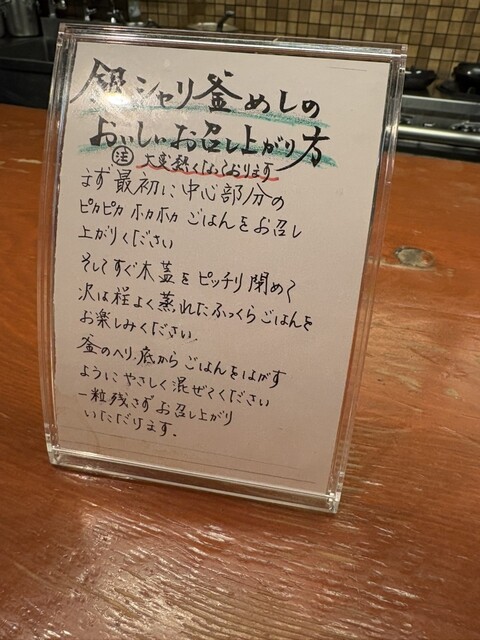 銀シャリ釜めしの
おいしいお召し上がり方
注 大変熱くなっております
まず最初に中心部分の
ピカピカ ホカホカ ごはんをお召し
上がりください
そしてすぐ木蓋をピッチリ閉めて
次は程よく蒸れたふっくらごはんを
お楽しみください。
釜のヘリ、底からごはんをはがす
ようにやさしく混ぜてください
一粒残さずお召し上がり
いただけます。